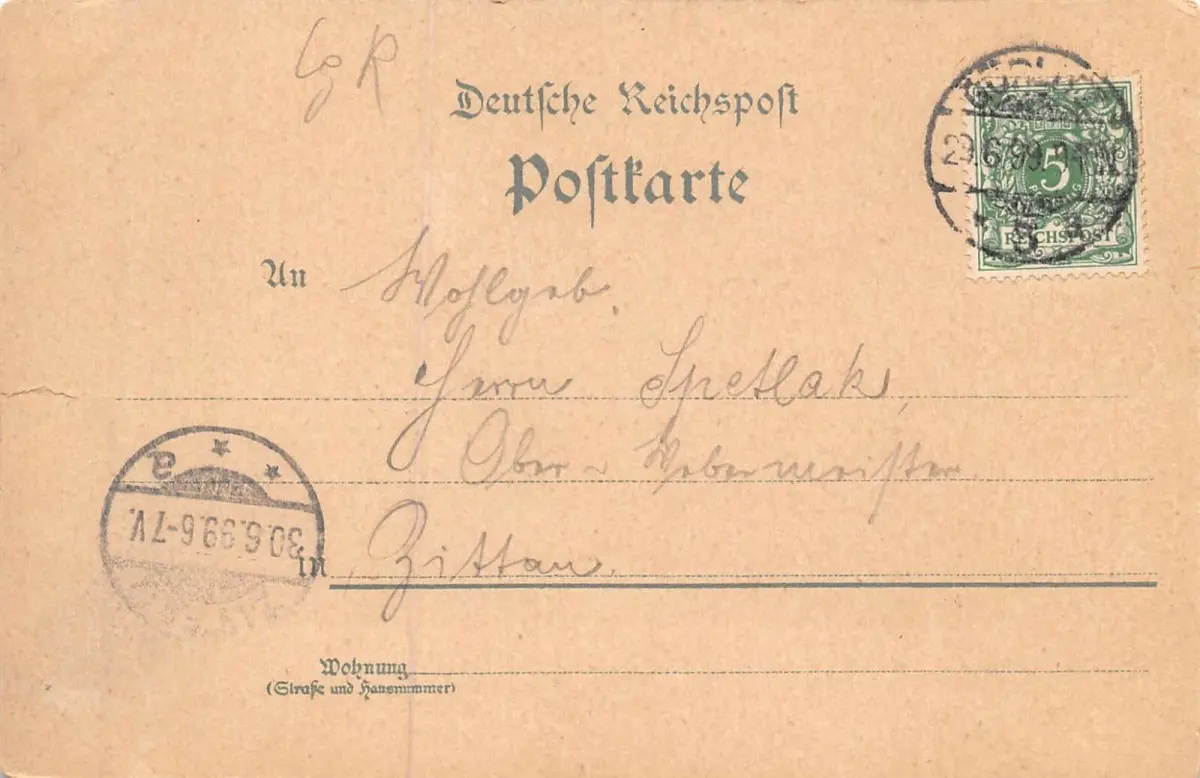 Deutsche Reichspost
Postkarte
5
REICHSPOST
29.6.99
An Wohlgeb.
Herrn Spetlak,
Ober-Webermeister
in Zittau.
30.6.99.6-7V.
Wohnung
(Straße und Hausnummer)